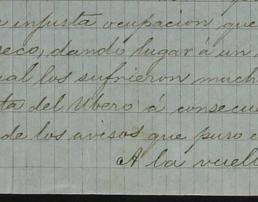 injusta ocupacion que
eco, dando lugar á un
ual los sufrieron much
ta del Ubero á consecue
de los avisos que puso e
A la vuelt